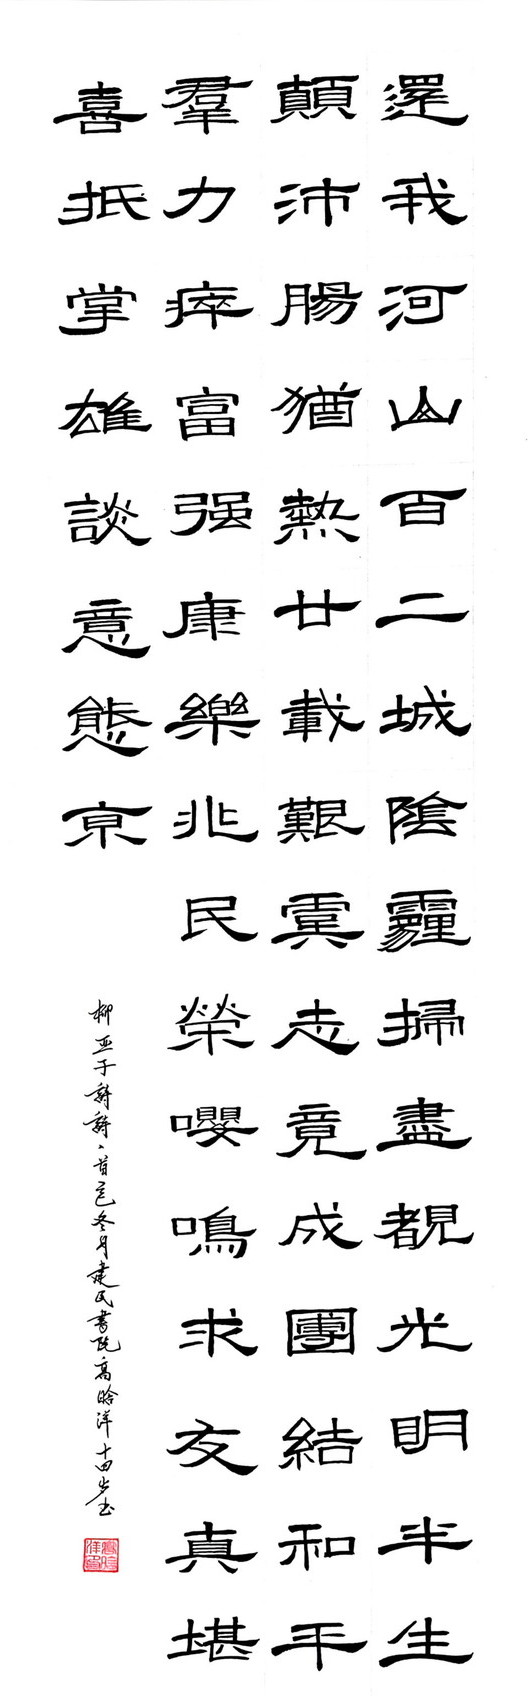 還我河山百二城陰霾掃盡覩光明半生
顛沛腸猶熱廿載艱虞志竟成團結和平
羣力瘁富强康樂兆民榮嚶鳴求友真堪
喜抵掌雄談意態京
柳亚子詩 首 冬月建民書院高晗洋十四岁书